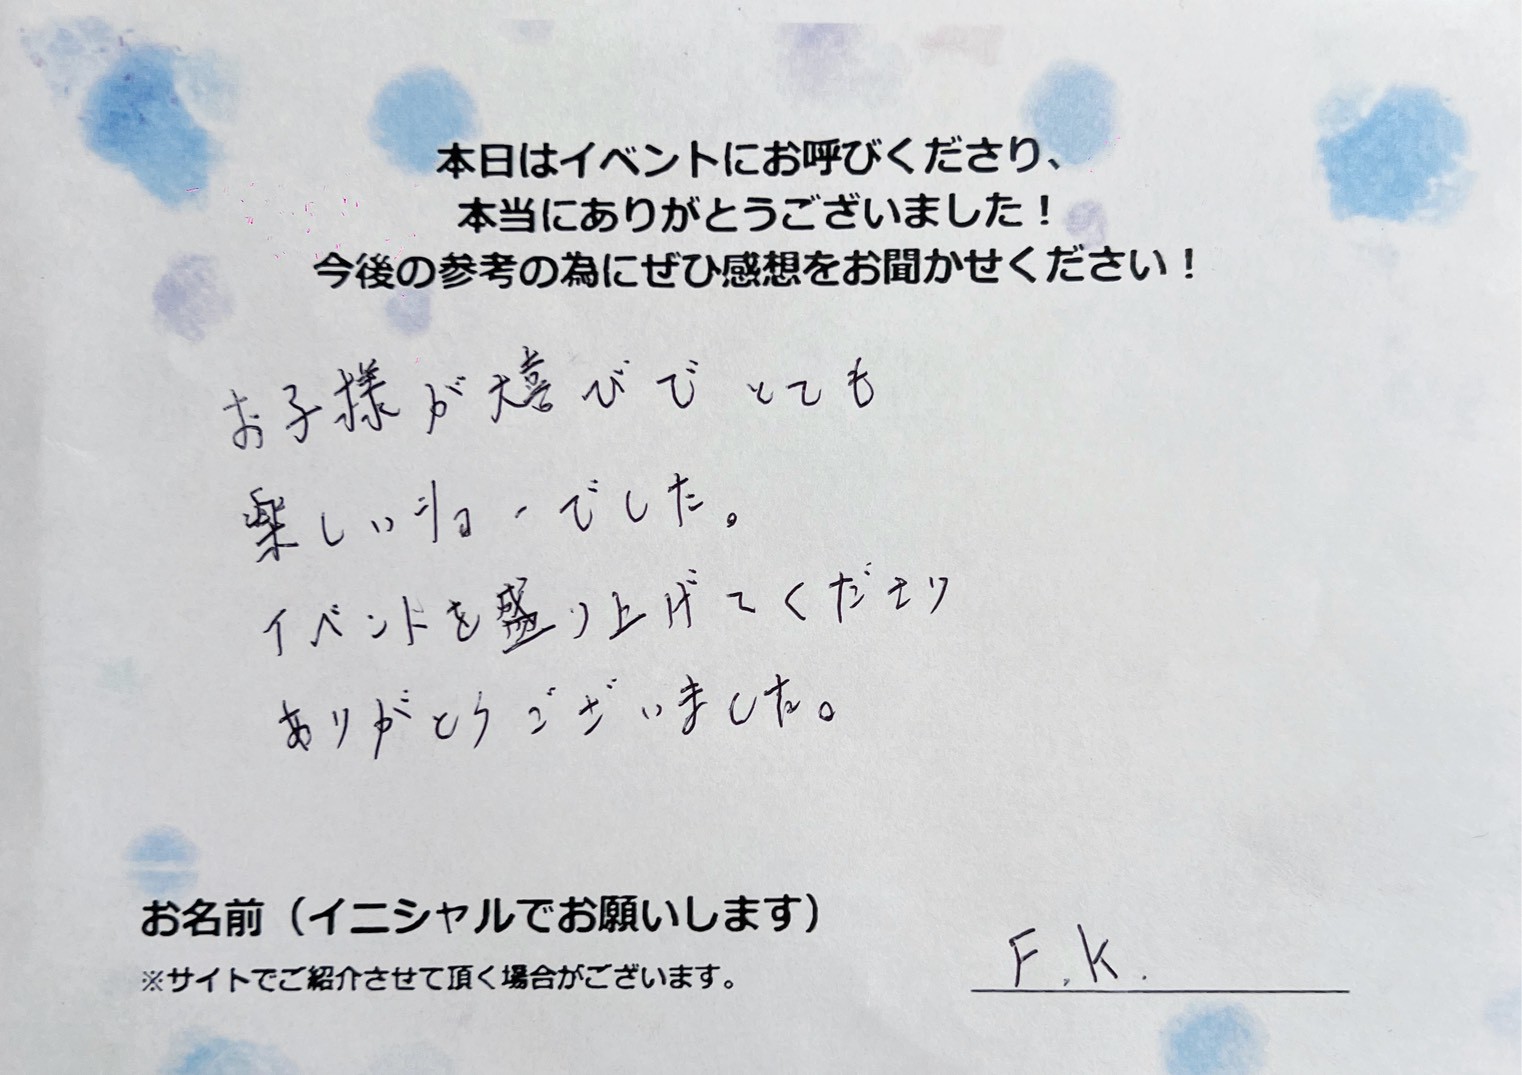 本日はイベントにお呼びくださり、
本当にありがとうございました！
今後の参考の為にぜひ感想をお聞かせください！
お子様が大喜びでとても
楽しいショーでした。
イベントを盛り上げてくださり
ありがとうございました。
お名前（イニシャルでお願いします）
※サイトでご紹介させて頂く場合がございます。
F.K.